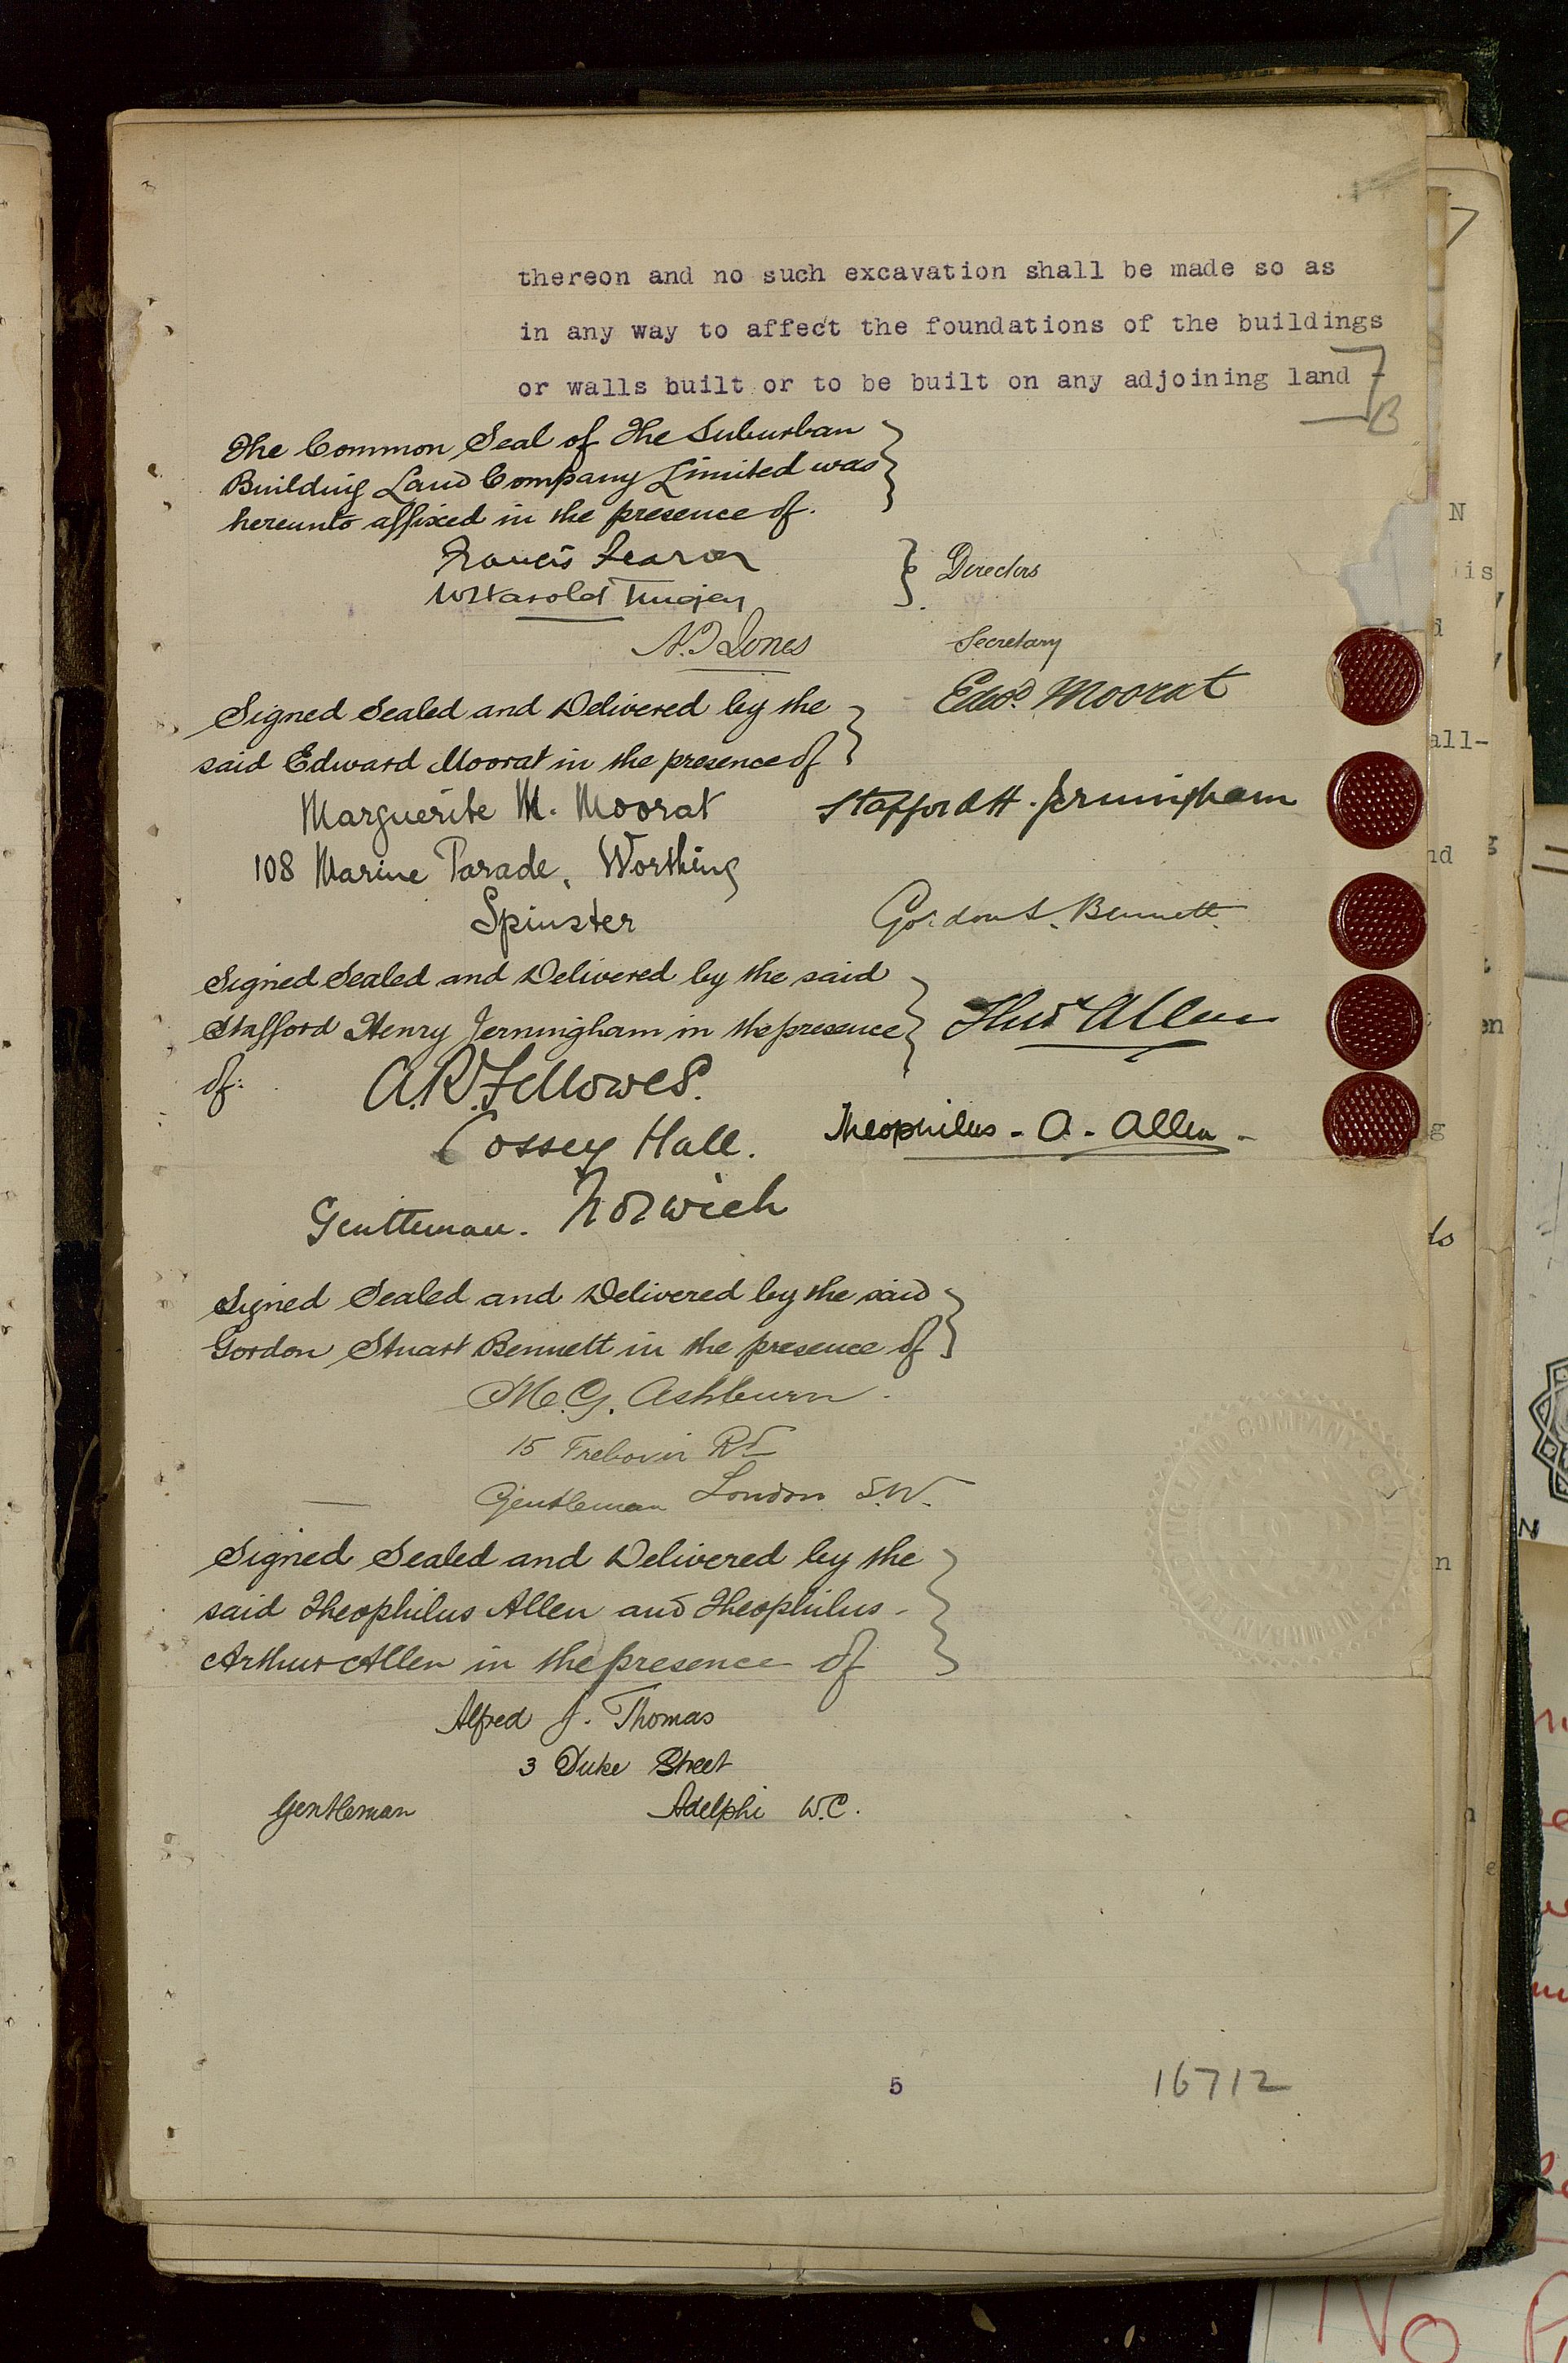 thereon and no such excavation shall be made so as
in any way to affect the foundations of the buildings
or walls built or to be built on any adjoining land
B
The Common Seal of The Suburban
Building Land Company Limited was
hereunto affixed in the presence of.
Francis Fearon
W Harold
Directors
Jones
Secretary
Signed Sealed and Delivered by the
said Edward Moorat in the presence of
Edwd. Moorat
Marguerite M. Moorat
108 Marine Parade, Worthing
Spinster
Stafford H. Jerningham
Gordon S. Bennett
Signed Sealed and Delivered by the said
Stafford Henry Jerningham in the presence
of:
Theo Allen
A.R. Fellowes.
Cossey Hall.
Gentleman. Norwich
Theophilus - A - Allen -
Signed Sealed and Delivered by the said
Gordon Stuart Bennett in the presence of
M.G. Ashburn.
15 Trebovir Rd
Gentleman London S.W.
Signed Sealed and Delivered by the
said Theophilus Allen and Theophilus -
Arthur Allen in the presence of
Alfred J. Thomas
3 Duke Street
Gentleman Adelphi W.C.
COMPANY
SUBURBAN
5
16712
No